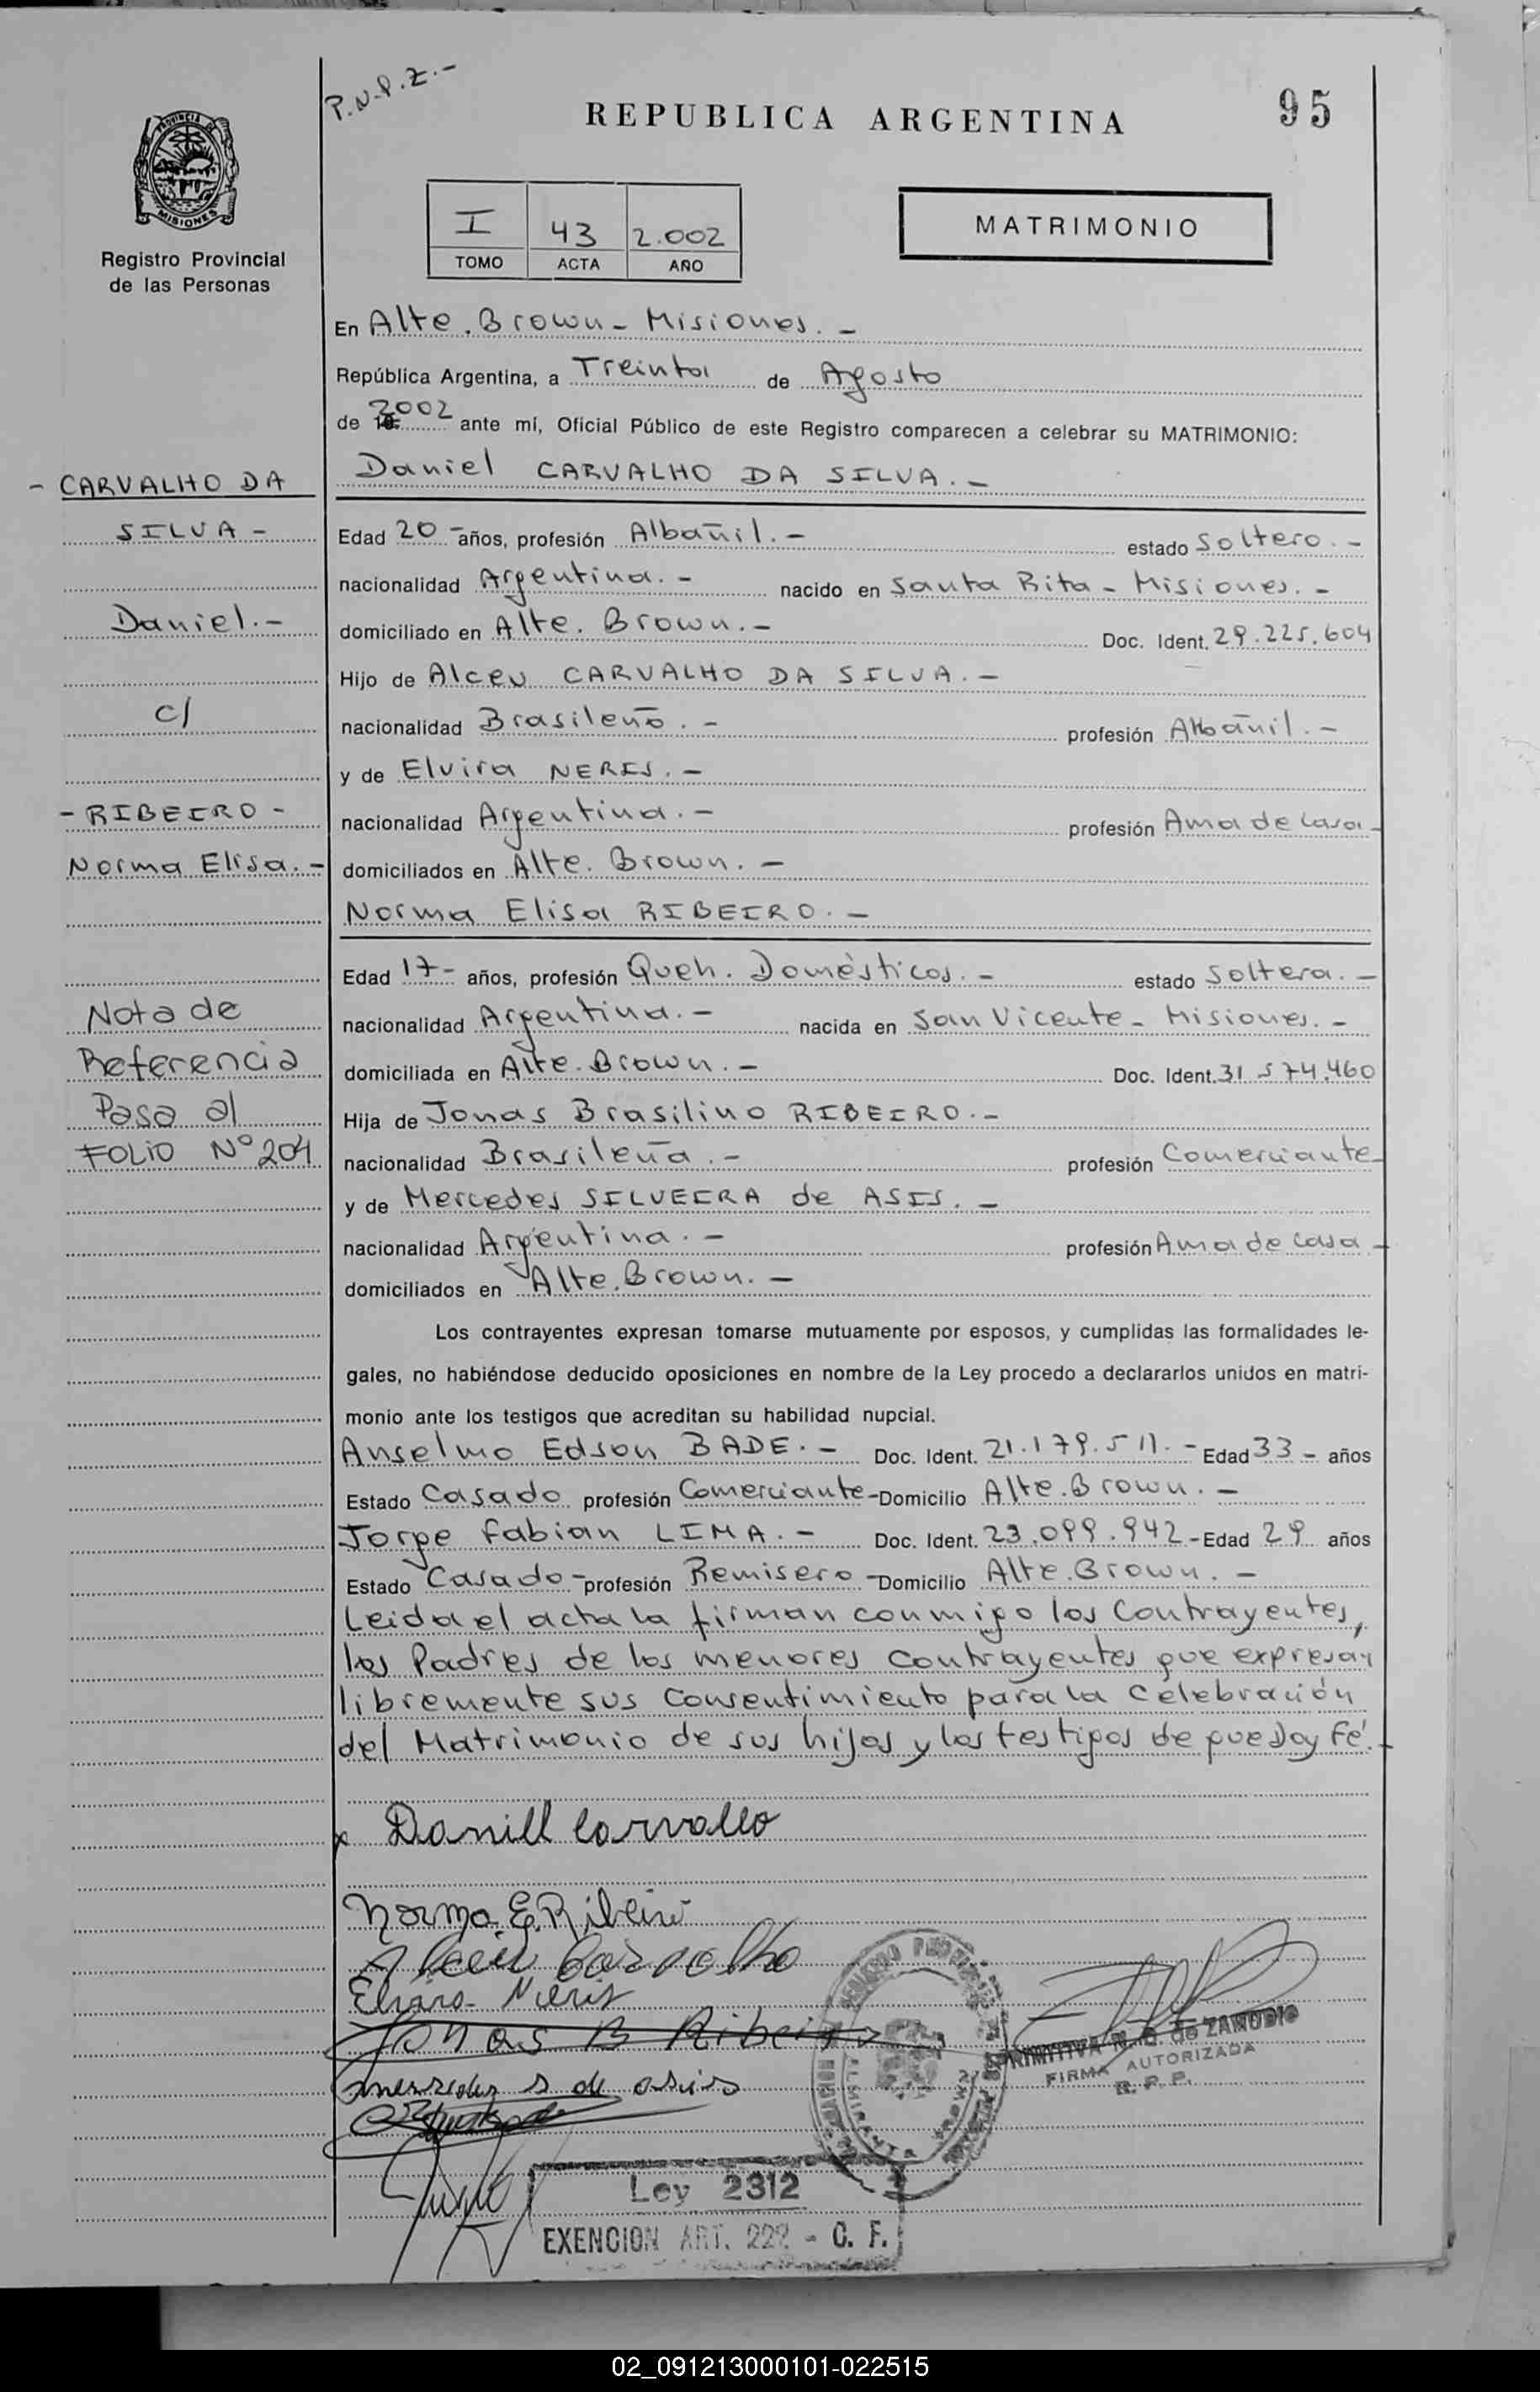 P.N.P.Z.-
REPUBLICA ARGENTINA
95
PROVINCIA DE
MISIONES
Registro Provincial
de las Personas
I 43 2.002
TOMO ACTA AÑO
MATRIMONIO
En Alte. Brown - Misiones. -
República Argentina, a Treinta de Agosto
de 2002 ante mí, Oficial Público de este Registro comparecen a celebrar su MATRIMONIO:
Daniel CARVALHO DA SILVA. -
- CARVALHO DA
SILVA -
Daniel. -
c/
- RIBEIRO -
Norma Elisa. -
Nota de
Referencia
Pasa al
FOLIO N° 204
Edad 20 - años, profesión Albañil. - estado Soltero. -
nacionalidad Argentina. - nacido en Santa Rita - Misiones. -
domiciliado en Alte. Brown. - Doc. Ident. 29.225.604
Hijo de Alceu CARVALHO DA SILVA. -
nacionalidad Brasileño. - profesión Albañil. -
y de Elvira NERIS. -
nacionalidad Argentina. - profesión Ama de Casa -
domiciliados en Alte. Brown. -
Norma Elisa RIBEIRO. -
Edad 17 - años, profesión Queh. Domésticos. - estado Soltera. -
nacionalidad Argentina. - nacida en San Vicente - Misiones. -
domiciliada en Alte. Brown. - Doc. Ident. 31.574.460
Hija de Jonas Brasilino RIBEIRO. -
nacionalidad Brasileña. - profesión Comerciante -
y de Mercedes SILVEIRA de ASIS. -
nacionalidad Argentina. - profesión Ama de Casa -
domiciliados en Alte. Brown. -
Los contrayentes expresan tomarse mutuamente por esposos, y cumplidas las formalidades le-
gales, no habiéndose deducido oposiciones en nombre de la Ley procedo a declararlos unidos en matri-
monio ante los testigos que acreditan su habilidad nupcial.
Anselmo Edson BADE. - Doc. Ident. 21.179.511. - Edad 33 - años
Estado Casado profesión Comerciante - Domicilio Alte. Brown. -
Jorge Fabian LIMA. - Doc. Ident. 23.099.942 - Edad 29 años
Estado Casado - profesión Remisero - Domicilio Alte. Brown. -
Leida el acta la firman conmigo los Contrayentes,
los Padres de los menores contrayentes que expresan
libremente sus Consentimiento para la Celebración
del Matrimonio de sus hijos y los testigos de que Doy Fé. -
x Daniel Carvallo
Norma E. Ribeiro
Alceu Carvalho
Elvira Neris
Jonas B Ribeiro
mercedes s de asis
PRIMITIVA N. D. de ZANUDIO
FIRMA AUTORIZADA
R. P. P.
Ley 2312
EXENCION ART. 222 - C. F.
02_091213000101-022515